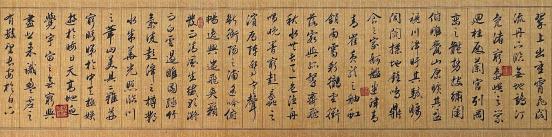 翠上出重霄飛閣
流丹下臨無地鶴汀
鳧渚窮島嶼之縈
迴桂殿蘭宮列岡
巒之體披繡闥
俯雕甍山原曠其盈
視川澤盱其駭矚
閭閻撲地鐘鳴鼎
食之家舸艦迷津青
雀黃龍之舳虹
銷雨霽彩徹雲衢
落霞與孤鶩齊飛
秋水共長天一色漁舟
唱晚響窮彭蠡之
濱雁陣驚寒聲
斷衡陽之浦遙吟俯
暢逸興遄飛爽籟
發而清風生纖歌凝
而白雲遏睢園綠竹
氣凌彭澤之樽鄴
水朱華光照臨川
之筆四美具二難並
窮睇眄於中天極娛
遊於暇日天高地迥
覺宇宙之無窮興
盡悲來識盈虛之
有數望長安於日下